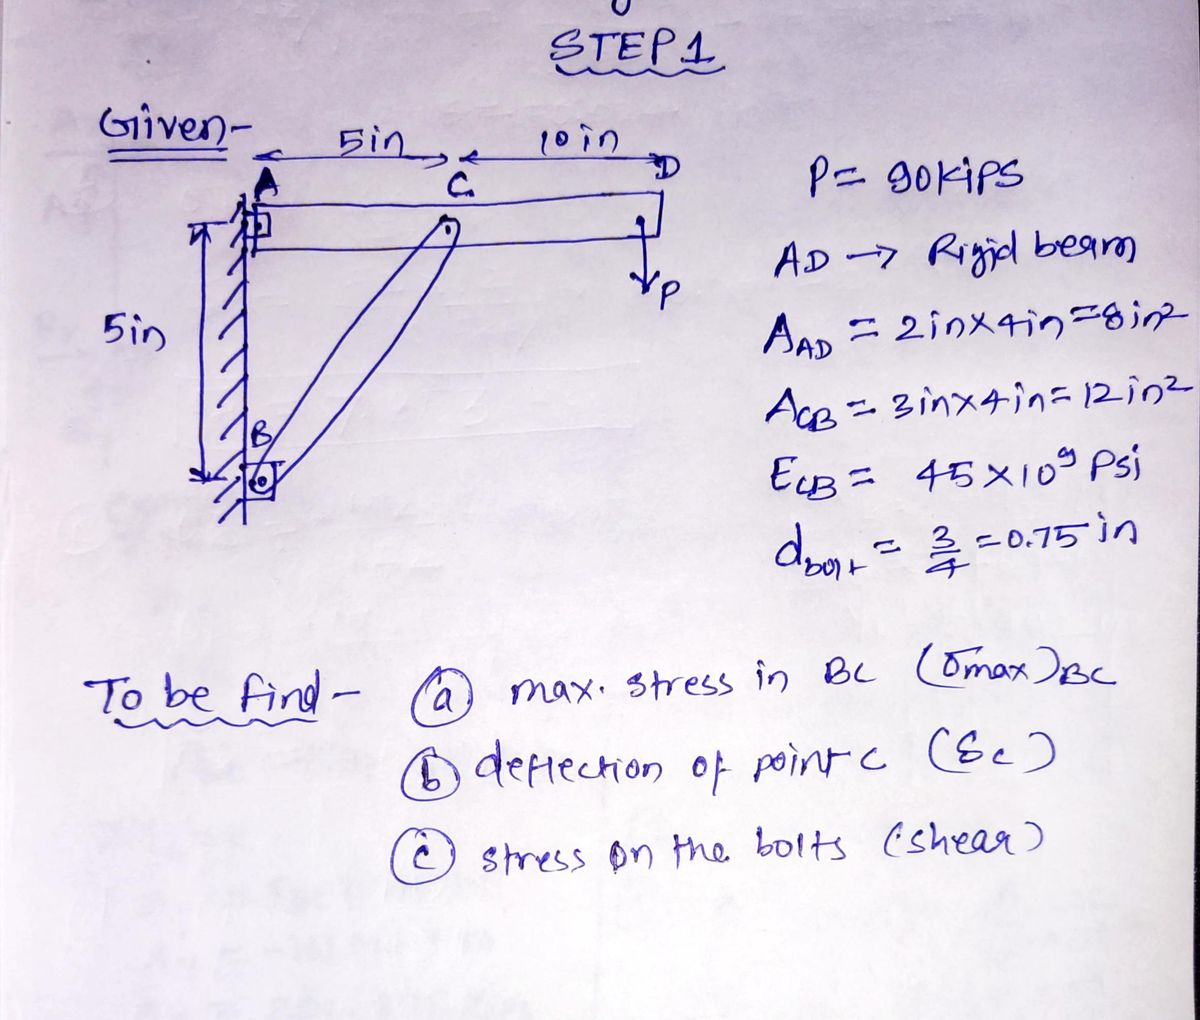 STEP 1
Given-
5in 10in
A C. D
P
5in
B
P= 90kips
AD → Rigid beam
A_AD = 2in×4in=8in²
A_CB = 3in×4in= 12in²
E_CB = 45×10⁹ Psi
d_bolt = 3/4 =0.75 in
To be find- (a) max. stress in BC (σmax)BC
(b) deflection of point c (δc)
(c) stress on the bolts (shear)